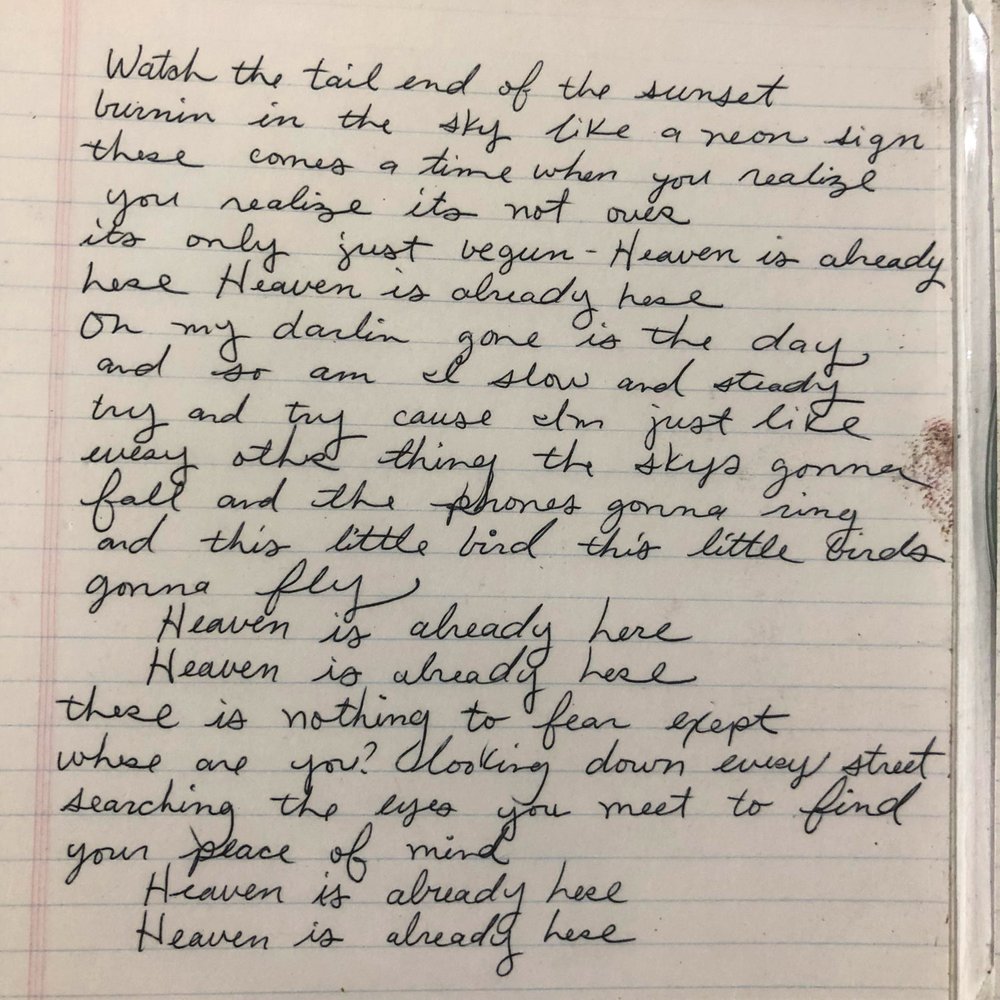 Watch the tail end of the sunset
burnin in the sky like a neon sign
there comes a time when you realize
you realize its not over
its only just begun - Heaven is already
here Heaven is already here
Oh my darlin gone is the day
and so am I slow and steady
try and try cause Im just like
every other thing the skys gonna
fall and the phones gonna ring
and this little bird this little birds
gonna fly
Heaven is already here
Heaven is already here
there is nothing to fear exept
where are you? looking down every street
searching the eyes you meet to find
your peace of mind
Heaven is already here
Heaven is already here